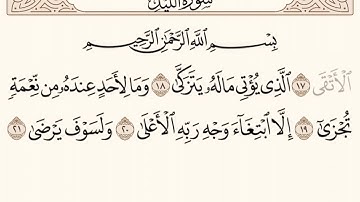 سورة الليل
بِسْمِ اللَّهِ الرَّحْمَٰنِ الرَّحِيمِ
الْأَتْقَى ١٧ الَّذِي يُؤْتِي مَالَهُ يَتَزَكَّىٰ ١٨ وَمَا لِأَحَدٍ عِندَهُ مِن نِّعْمَةٍ
تُجْزَىٰ ١٩ إِلَّا ابْتِغَاءَ وَجْهِ رَبِّهِ الْأَعْلَىٰ ٢٠ وَلَسَوْفَ يَرْضَىٰ ٢١